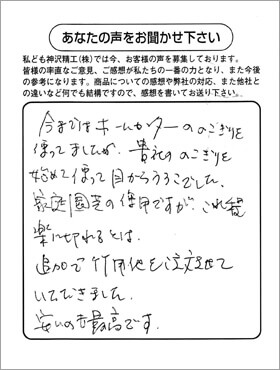 あなたの声をお聞かせ下さい
私ども神沢精工(株)では今、お客様の声を募集しております。
皆様の率直なご意見、ご感想が私たちの一番の力となり、また今後
の参考になります。商品についての感想や弊社の対応、また他社と
の違いなど何でも結構ですので、感想を書いてお送り下さい。
今まではホームセンターののこぎりを
使ってましたが、貴社ののこぎりを
始めて使って目からうろこでした。
家庭園芸の使用ですが、これ程
楽に切れるとは。
追加で竹用他を注文させて
いただきました。
安いのも最高です。